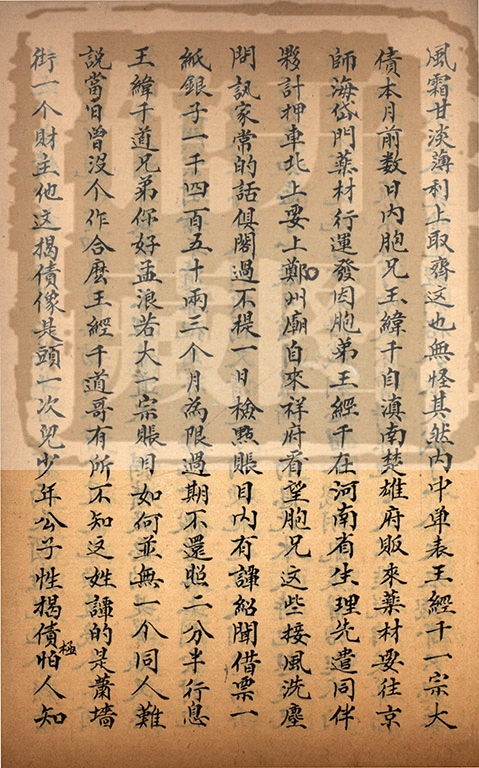 風霜甘淡薄利上取齊这也無怪其然内中单表王經千一宗大
債本月前数日内胞兄王緯千自滇南楚雄府販來藥材要往京
師海岱門藥材行運發因胞弟王經千在河南省生理先遣同伴
夥計押車北上要上鄭州廟自來祥府看望胞兄这些接風洗塵
問訊家常的話俱閣過不提一日檢點賬目内有譚紹聞借票一
紙銀子一千四百五十兩三个月為限過期不還照二分半行息
王緯千道兄弟你好孟浪若大一宗賬目如何並無一个同人難
説當日曾沒个作合麽王經千道哥有所不知这姓譚的是蕭墻
街一个財主他这揭債像是頭一次兒少年公子性揭債極怕人知